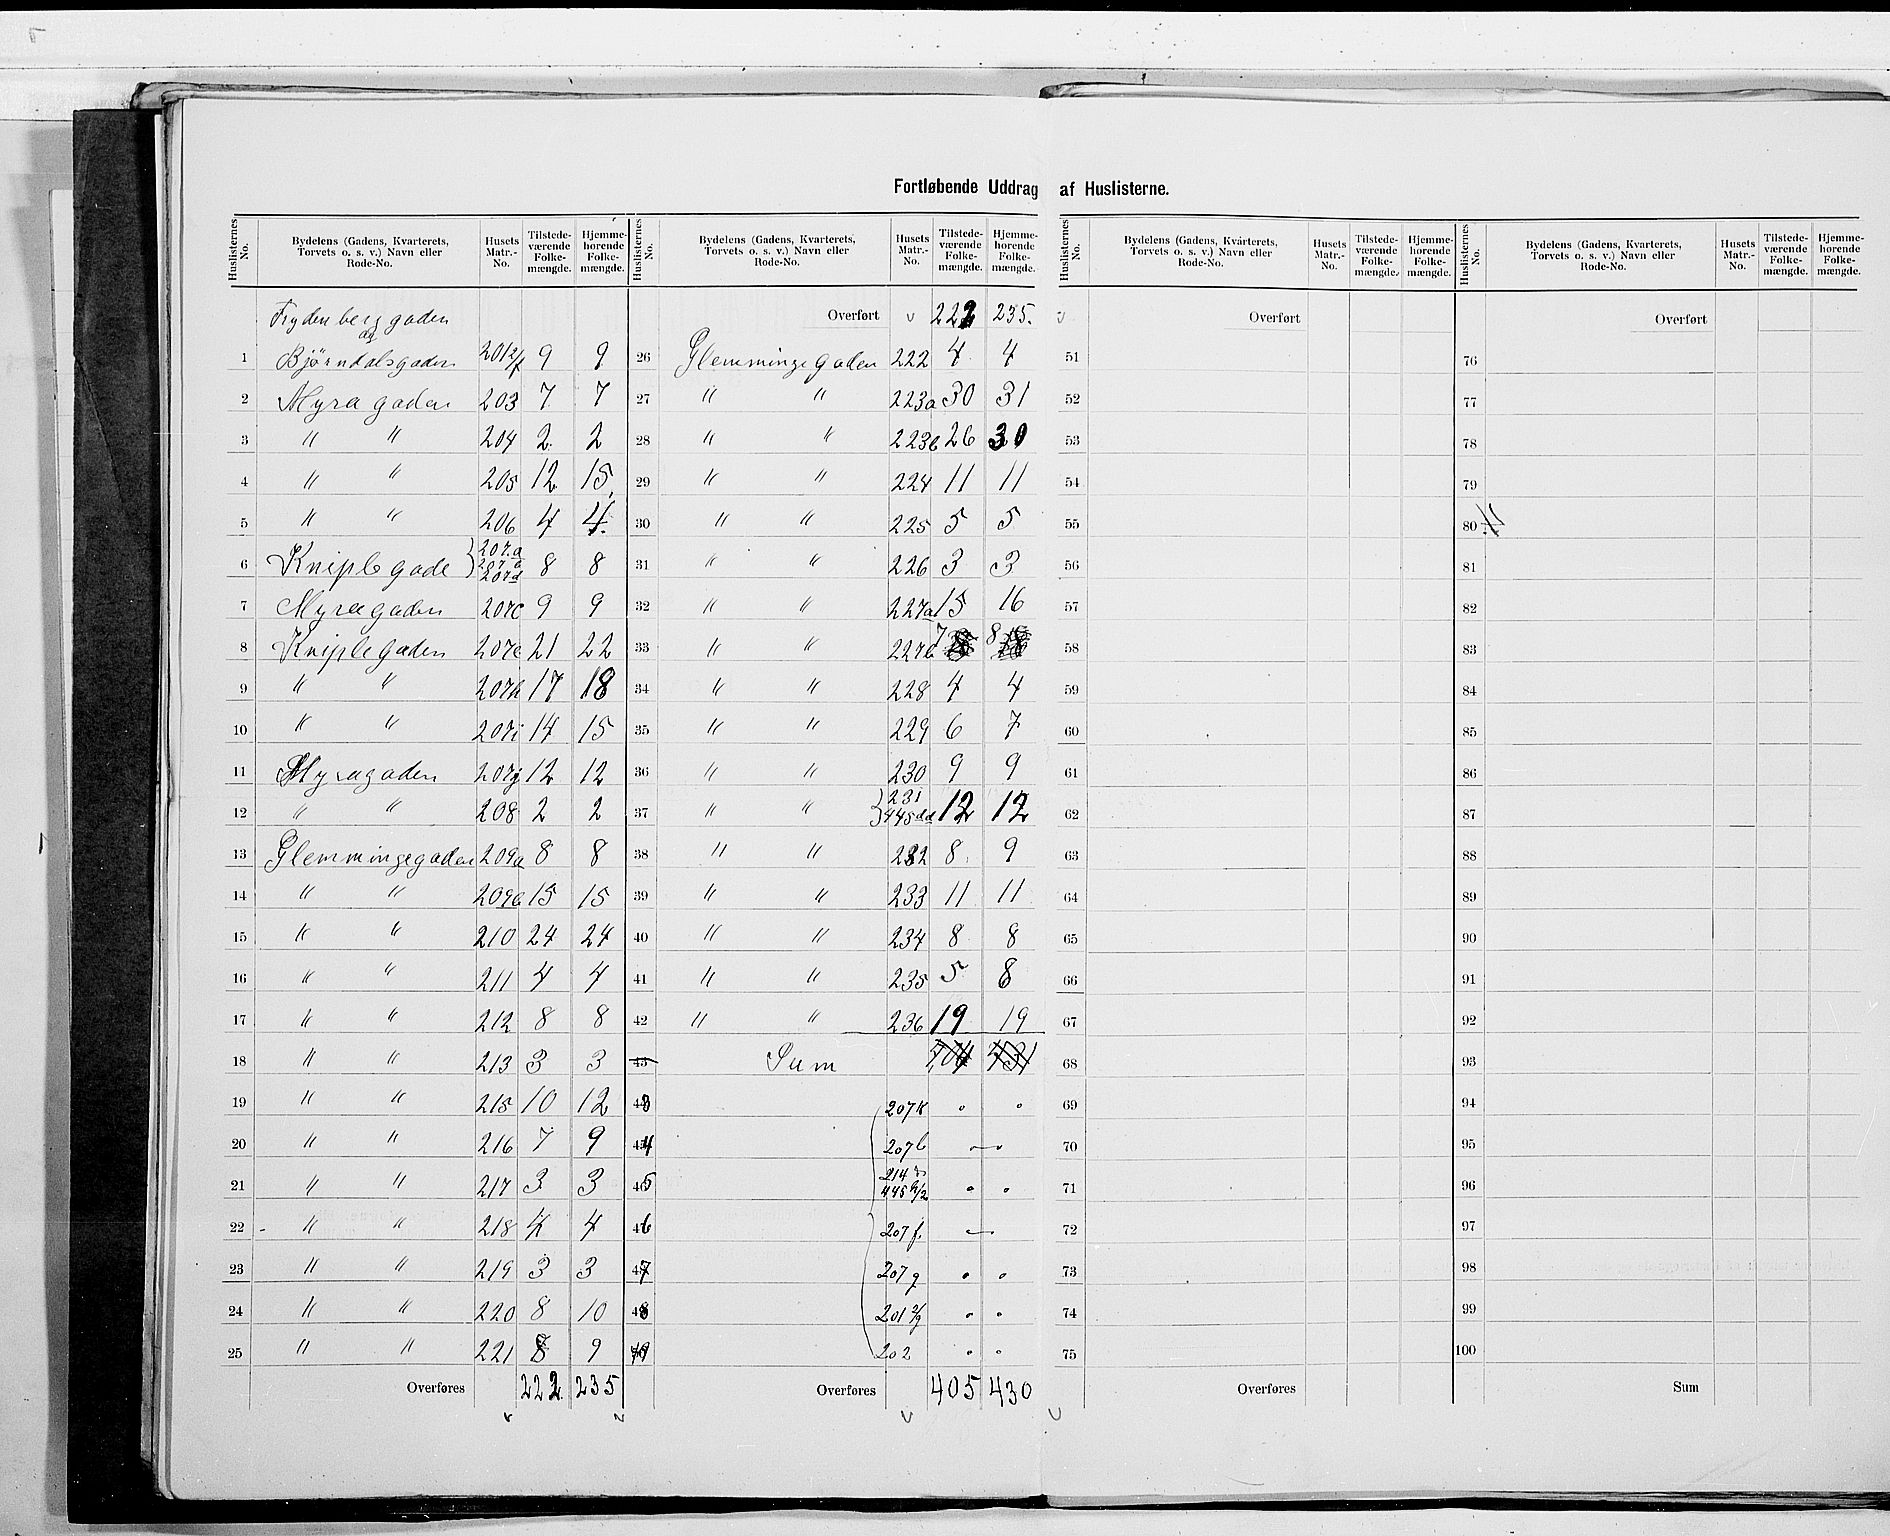 Fortløbende Uddrag af Huslisterne.
Huslisternes No. | Bydelens (Gadens, Kvarterets, Torvets o. s. v.) Navn eller Rode-No. | Husets Matr.-No. | Tilstedeværende Folkemængde. | Hjemmehørende Folkemængde.
Frydenberggaden
og
1 Bjørndalsgaden 201 2/f 9 9
2 Myragaden 203 7 7
3 " " 204 2 2
4 " " 205 12 15
5 " " 206 4 4
6 Kniplegade 207a 207d 8 8
7 Myragaden 207c 9 9
8 Kniplegaden 207e 21 22
9 " " 207h 17 18
10 " " 207i 14 15
11 Myragaden 207j 12 12
12 " " 208 2 2
13 Glemmingegaden 209a 8 8
14 " " 209b 15 15
15 " " 210 24 24
16 " " 211 4 4
17 " " 212 8 8
18 " " 213 3 3
19 " " 215 10 12
20 " " 216 7 9
21 " " 217 3 3
22 " " 218 4 4
23 " " 219 3 3
24 " " 220 8 10
25 " " 221 8 9
Overføres 222 235
Huslisternes No. | Bydelens (Gadens, Kvarterets, Torvets o. s. v.) Navn eller Rode-No. | Husets Matr.-No. | Tilstedeværende Folkemængde. | Hjemmehørende Folkemængde.
Overført 222 235.
26 Glemmingegaden 222 4 4
27 " " 223a 30 31
28 " " 223b 26 30
29 " " 224 11 11
30 " " 225 5 5
31 " " 226 3 3
32 " " 227a 15 16
33 " " 227b 7 8
34 " " 228 4 4
35 " " 229 6 7
36 " " 230 9 9
37 " " 231 445dd 12 12
38 " " 232 8 9
39 " " 233 11 11
40 " " 234 8 8
41 " " 235 5 8
42 " " 236 19 19
43 Sum 404 431
43 207k " "
44 207b
45 214 445 h/2 " "
46 207f.
47 207g " "
48 201 2/g " "
49 202 " "
Overføres 405 430
Huslisternes No. | Bydelens (Gadens, Kvarterets, Torvets o. s. v.) Navn eller Rode-No. | Husets Matr.-No. | Tilstedeværende Folkemængde. | Hjemmehørende Folkemængde.
Overført
51
52
53
54
55
56
57
58
59
60
61
62
63
64
65
66
67
68
69
70
71
72
73
74
75
Overføres
Huslisternes No. | Bydelens (Gadens, Kvarterets, Torvets o. s. v.) Navn eller Rode-No. | Husets Matr.-No. | Tilstedeværende Folkemængde. | Hjemmehørende Folkemængde.
Overført
76
77
78
79
80
81
82
83
84
85
86
87
88
89
90
91
92
93
94
95
96
97
98
99
100
Sum